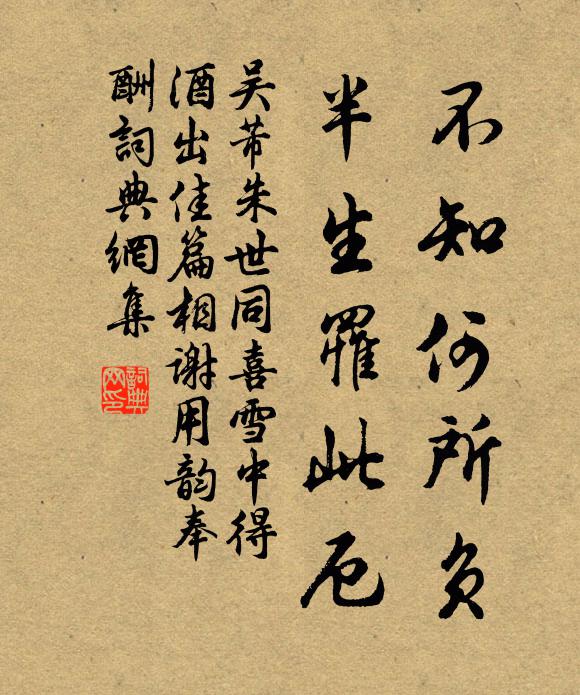 不知何所負
半生罹此厄
吴芾朱世同喜雪中得
酒出佳篇相謝用韵奉
酬詞典網集
詞典网印